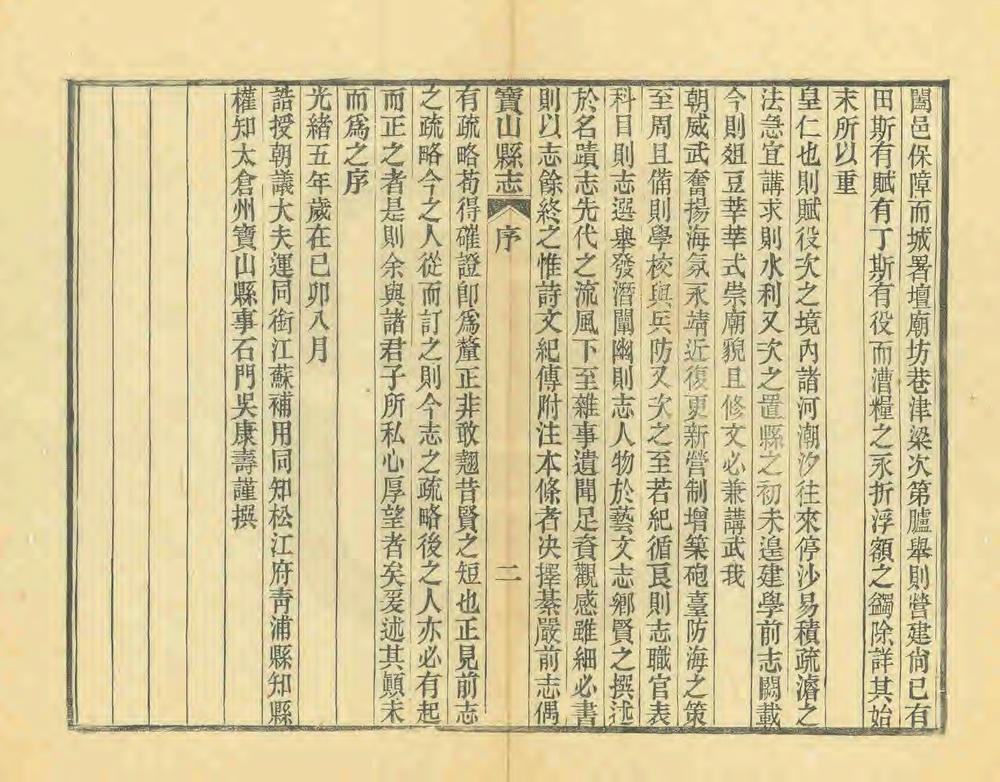 闔邑保障而城署壇廟坊巷津梁次第臚舉則營建尙已有
田斯有賦有丁斯有役而漕糧之永折浮額之蠲除詳其始
末所以重
皇仁也則賦役次之境內諸河潮汐往來停沙易積疏濬之
法急宜講求則水利又次之置縣之初未遑建學前志闕載
今則俎豆莘莘式崇廟貌且修文必兼講武我
朝威武奮揚海氛永靖近復更新營制增築砲臺防海之策
至周且備則學校與兵防又次之至若紀循良則志職官表
科目則志選舉發潛闡幽則志人物於藝文志鄉賢之撰述
於名蹟志先代之流風下至雜事遺聞足資觀感雖細必書
則以志餘終之惟詩文紀傳附注本條者决擇綦嚴前志偶
寶山縣志 序 二
有疏略苟得確證卽爲釐正非敢翹昔賢之短也正見前志
之疏略今之人從而訂之則今志之疏略後之人亦必有起
而正之者是則余與諸君子所私心厚望者矣爰述其顛末
而爲之序
光緒五年歲在己卯八月
誥授朝議大夫運同銜江蘇補用同知松江府青浦縣知縣
權知太倉州寶山縣事石門吳康壽謹撰